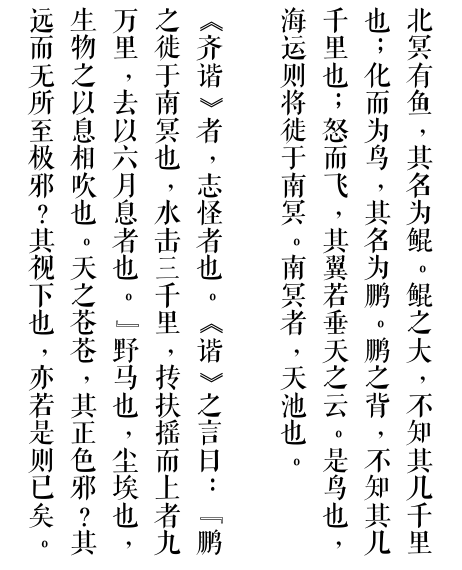 北冥有鱼，其名为鲲。鲲之大，不知其几千里
也；化而为鸟，其名为鹏。鹏之背，不知其几
千里也；怒而飞，其翼若垂天之云。是鸟也，
海运则将徙于南冥。南冥者，天池也。
《齐谐》者，志怪者也。《谐》之言曰：『鹏
之徙于南冥也，水击三千里，抟扶摇而上者九
万里，去以六月息者也。』野马也，尘埃也，
生物之以息相吹也。天之苍苍，其正色邪？其
远而无所至极邪？其视下也，亦若是则已矣。